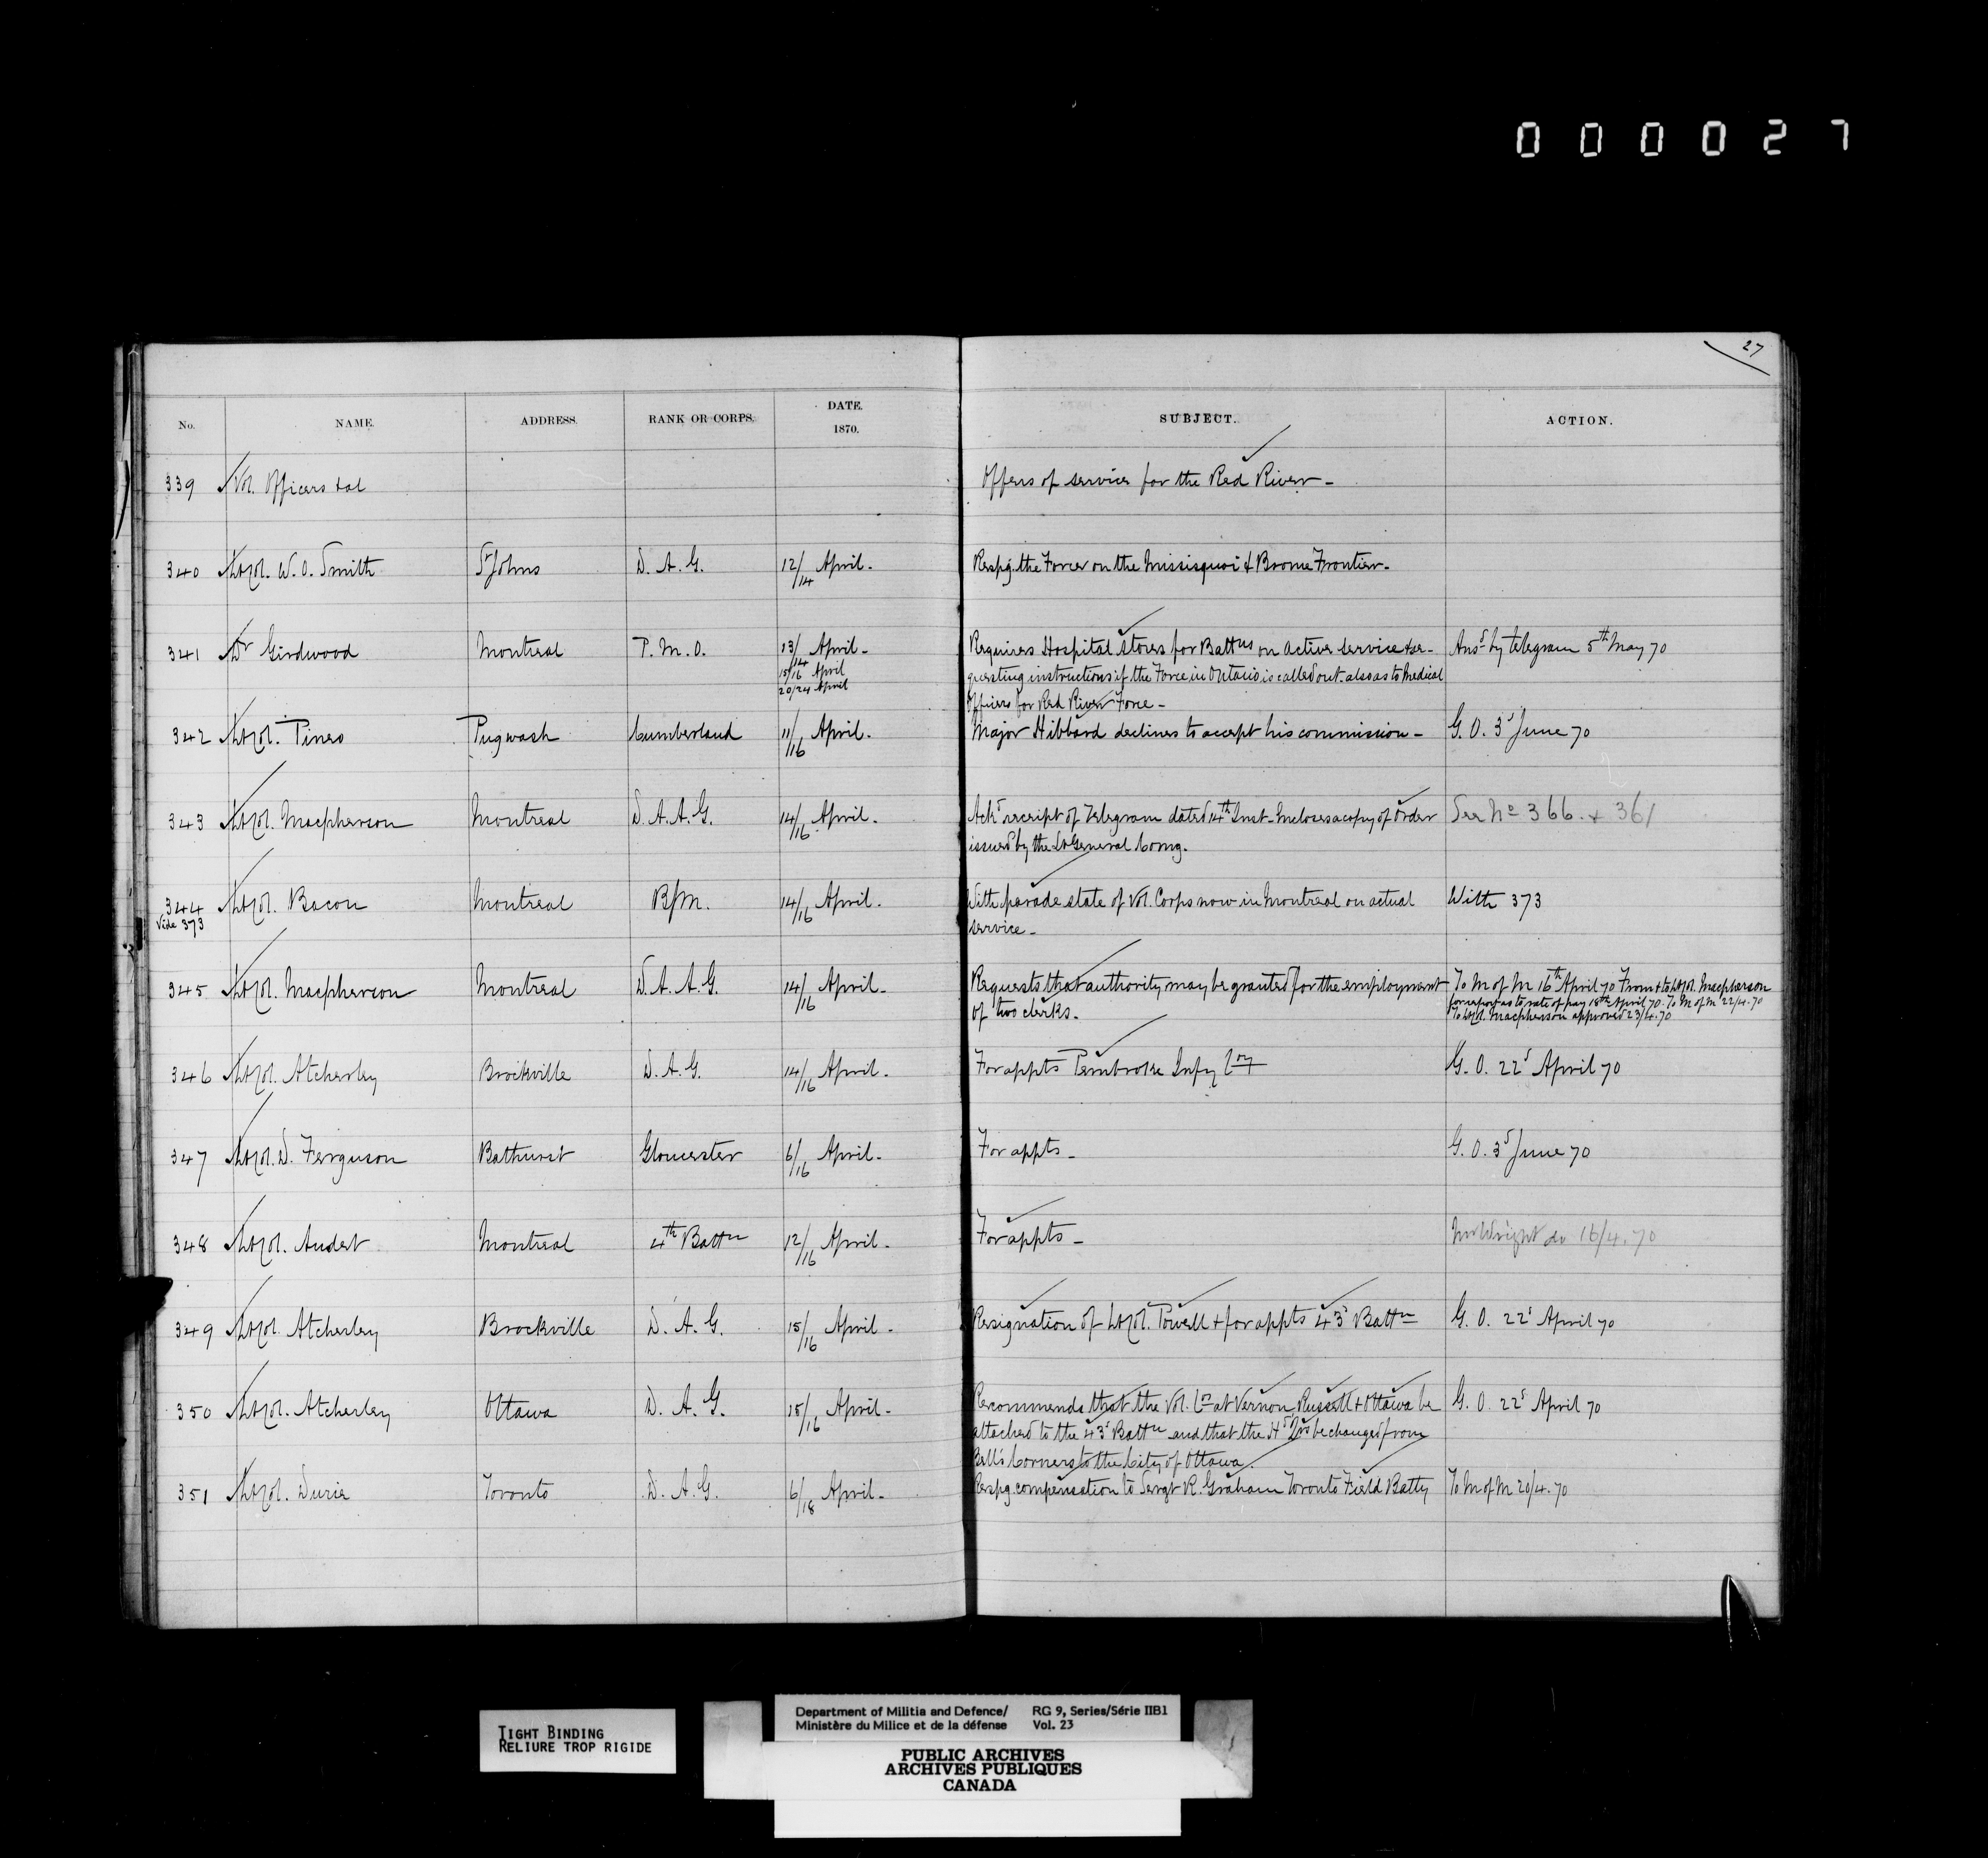 0 0 0 0 2 7
27
No. NAME. ADDRESS. RANK OR CORPS. DATE. 1870. SUBJECT. ACTION.
339 Vol. Officers &al Offers of service for the Red River -
340 Lt Col. W. O. Smith St Johns D. A. G. 12/14 April - Respg. the Force on the Missisquoi & Brome Frontier -
341 Dr Girdwood Montreal P. M. O. 13/14 April - Requires Hospital Stores for Battns on active service & re- Ansd by telegram 5th May 70
15/16 April questing instructions if the Force in Ontario is called out - also as to Medical
20/24 April Officers for Red River Force -
342 Lt Col. Pineo Pugwash Cumberland 11/16 April - Major Hibbard declines to accept his commission - G. O. 3d June 70
343 Lt Col. Macpherson Montreal D. A. A. G. 14/16 April - Ackd receipt of Telegram dated 14th Inst - Incloses a copy of Order See No 366 & 361
issued by the Lt General Comg.
344 Lt Col. Bacon Montreal B/M. 14/16 April - With parade state of Vol. Corps now in Montreal on actual With 373
Vide 373 service -
345 Lt Col. Macpherson Montreal D. A. A. G. 14/16 April - Requests that authority may be granted for the employment To M of M 16th April 70 From & to Lt Col. Macpherson
of two clerks - for report as to rate of pay 18th April 70. To M of M 22/4.70
To Lt Col. Macpherson approved 23/4.70
346 Lt Col. Atcherley Brockville D. A. G. 14/16 April - For appts Pembroke Infy Coy G. O. 22d April 70
347 Lt Col. D. Ferguson Bathurst Gloucester 6/16 April - For appts - G. O. 3d June 70
348 Lt Col. Audet Montreal 4th Battn 12/16 April - For appts - Mr Wright do 16/4.70
349 Lt Col. Atcherley Brockville D. A. G. 15/16 April - Resignation of Lt Col. Powell & for appts 43d Battn G. O. 22d April 70
350 Lt Col. Atcherley Ottawa D. A. G. 15/16 April - Recommends that the Vol. Cos at Vernon, Russell & Ottawa be G. O. 22d April 70
attached to the 43d Battn and that the Hd Qrs be changed from
Bell's Corners to the City of Ottawa.
351 Lt Col. Durie Toronto D. A. G. 6/18 April - Respg. compensation to Sergt R. Graham Toronto Field Batty To M of M 20/4.70
TIGHT BINDING
RELIURE TROP RIGIDE
Department of Militia and Defence/ RG 9, Series/Série IIB1
Ministère du Milice et de la défense Vol. 23
PUBLIC ARCHIVES
ARCHIVES PUBLIQUES
CANADA